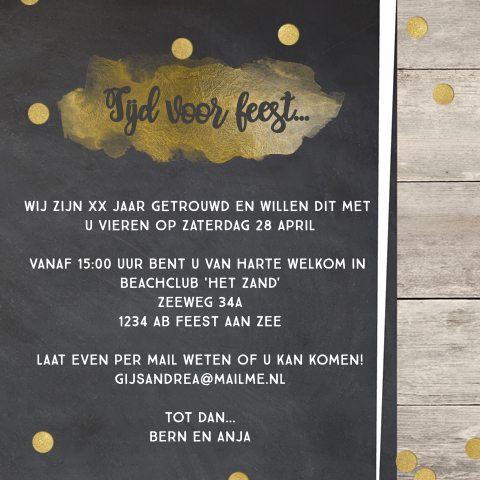 Tijd voor feest...
WIJ ZIJN XX JAAR GETROUWD EN WILLEN DIT MET
U VIEREN OP ZATERDAG 28 APRIL
VANAF 15:00 UUR BENT U VAN HARTE WELKOM IN
BEACHCLUB 'HET ZAND'
ZEEWEG 34A
1234 AB FEEST AAN ZEE
LAAT EVEN PER MAIL WETEN OF U KAN KOMEN!
GIJSANDREA@MAILME.NL
TOT DAN...
BERN EN ANJA